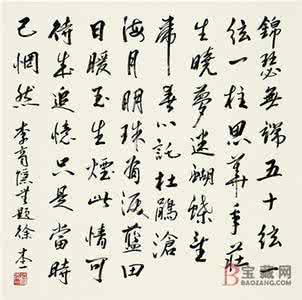 錦瑟無端五十弦一
弦一柱思華年莊
生曉夢迷蝴蝶望
帝春心託杜鵑滄
海月明珠有淚藍田
日暖玉生煙此情可
待成追憶只是當時
已惘然 李商隱無題徐
宝藏网
BAOZANG.COM